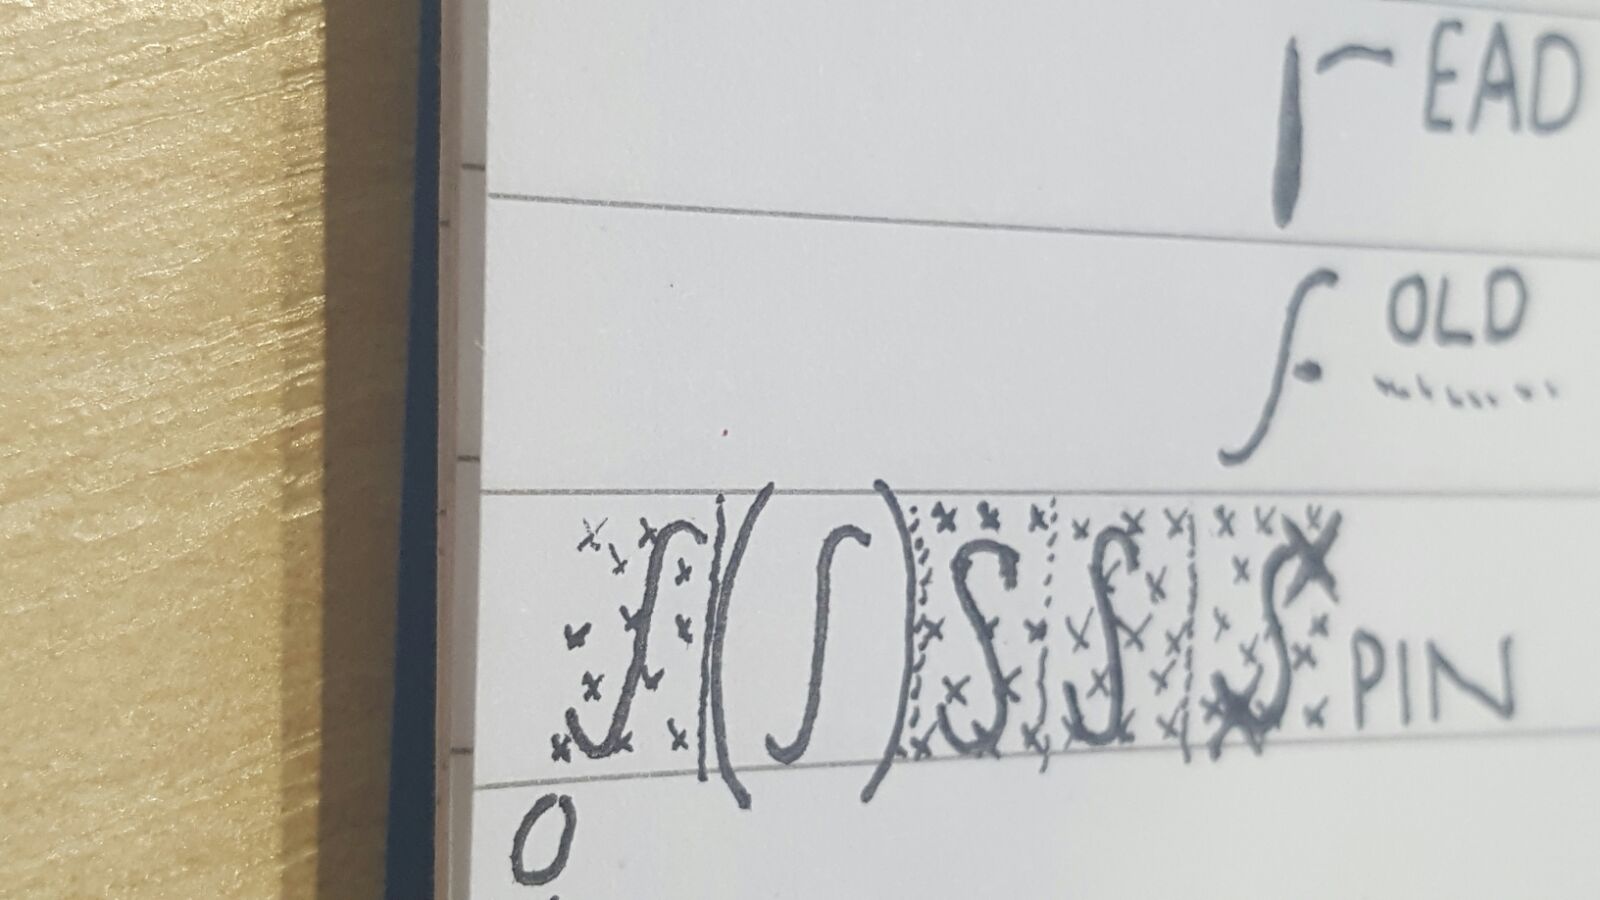 EAD
OLD
∫ (∫) ∫ ∫ ∫ PIN
0